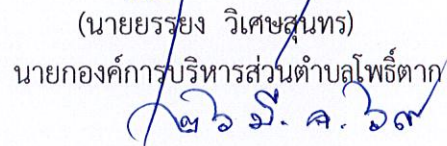 (นายยรรยง วิเศษสุนทร)
นายกองค์การบริหารส่วนตำบลโพธิ์ตาก
๒๖ มี.ค. ๖๙